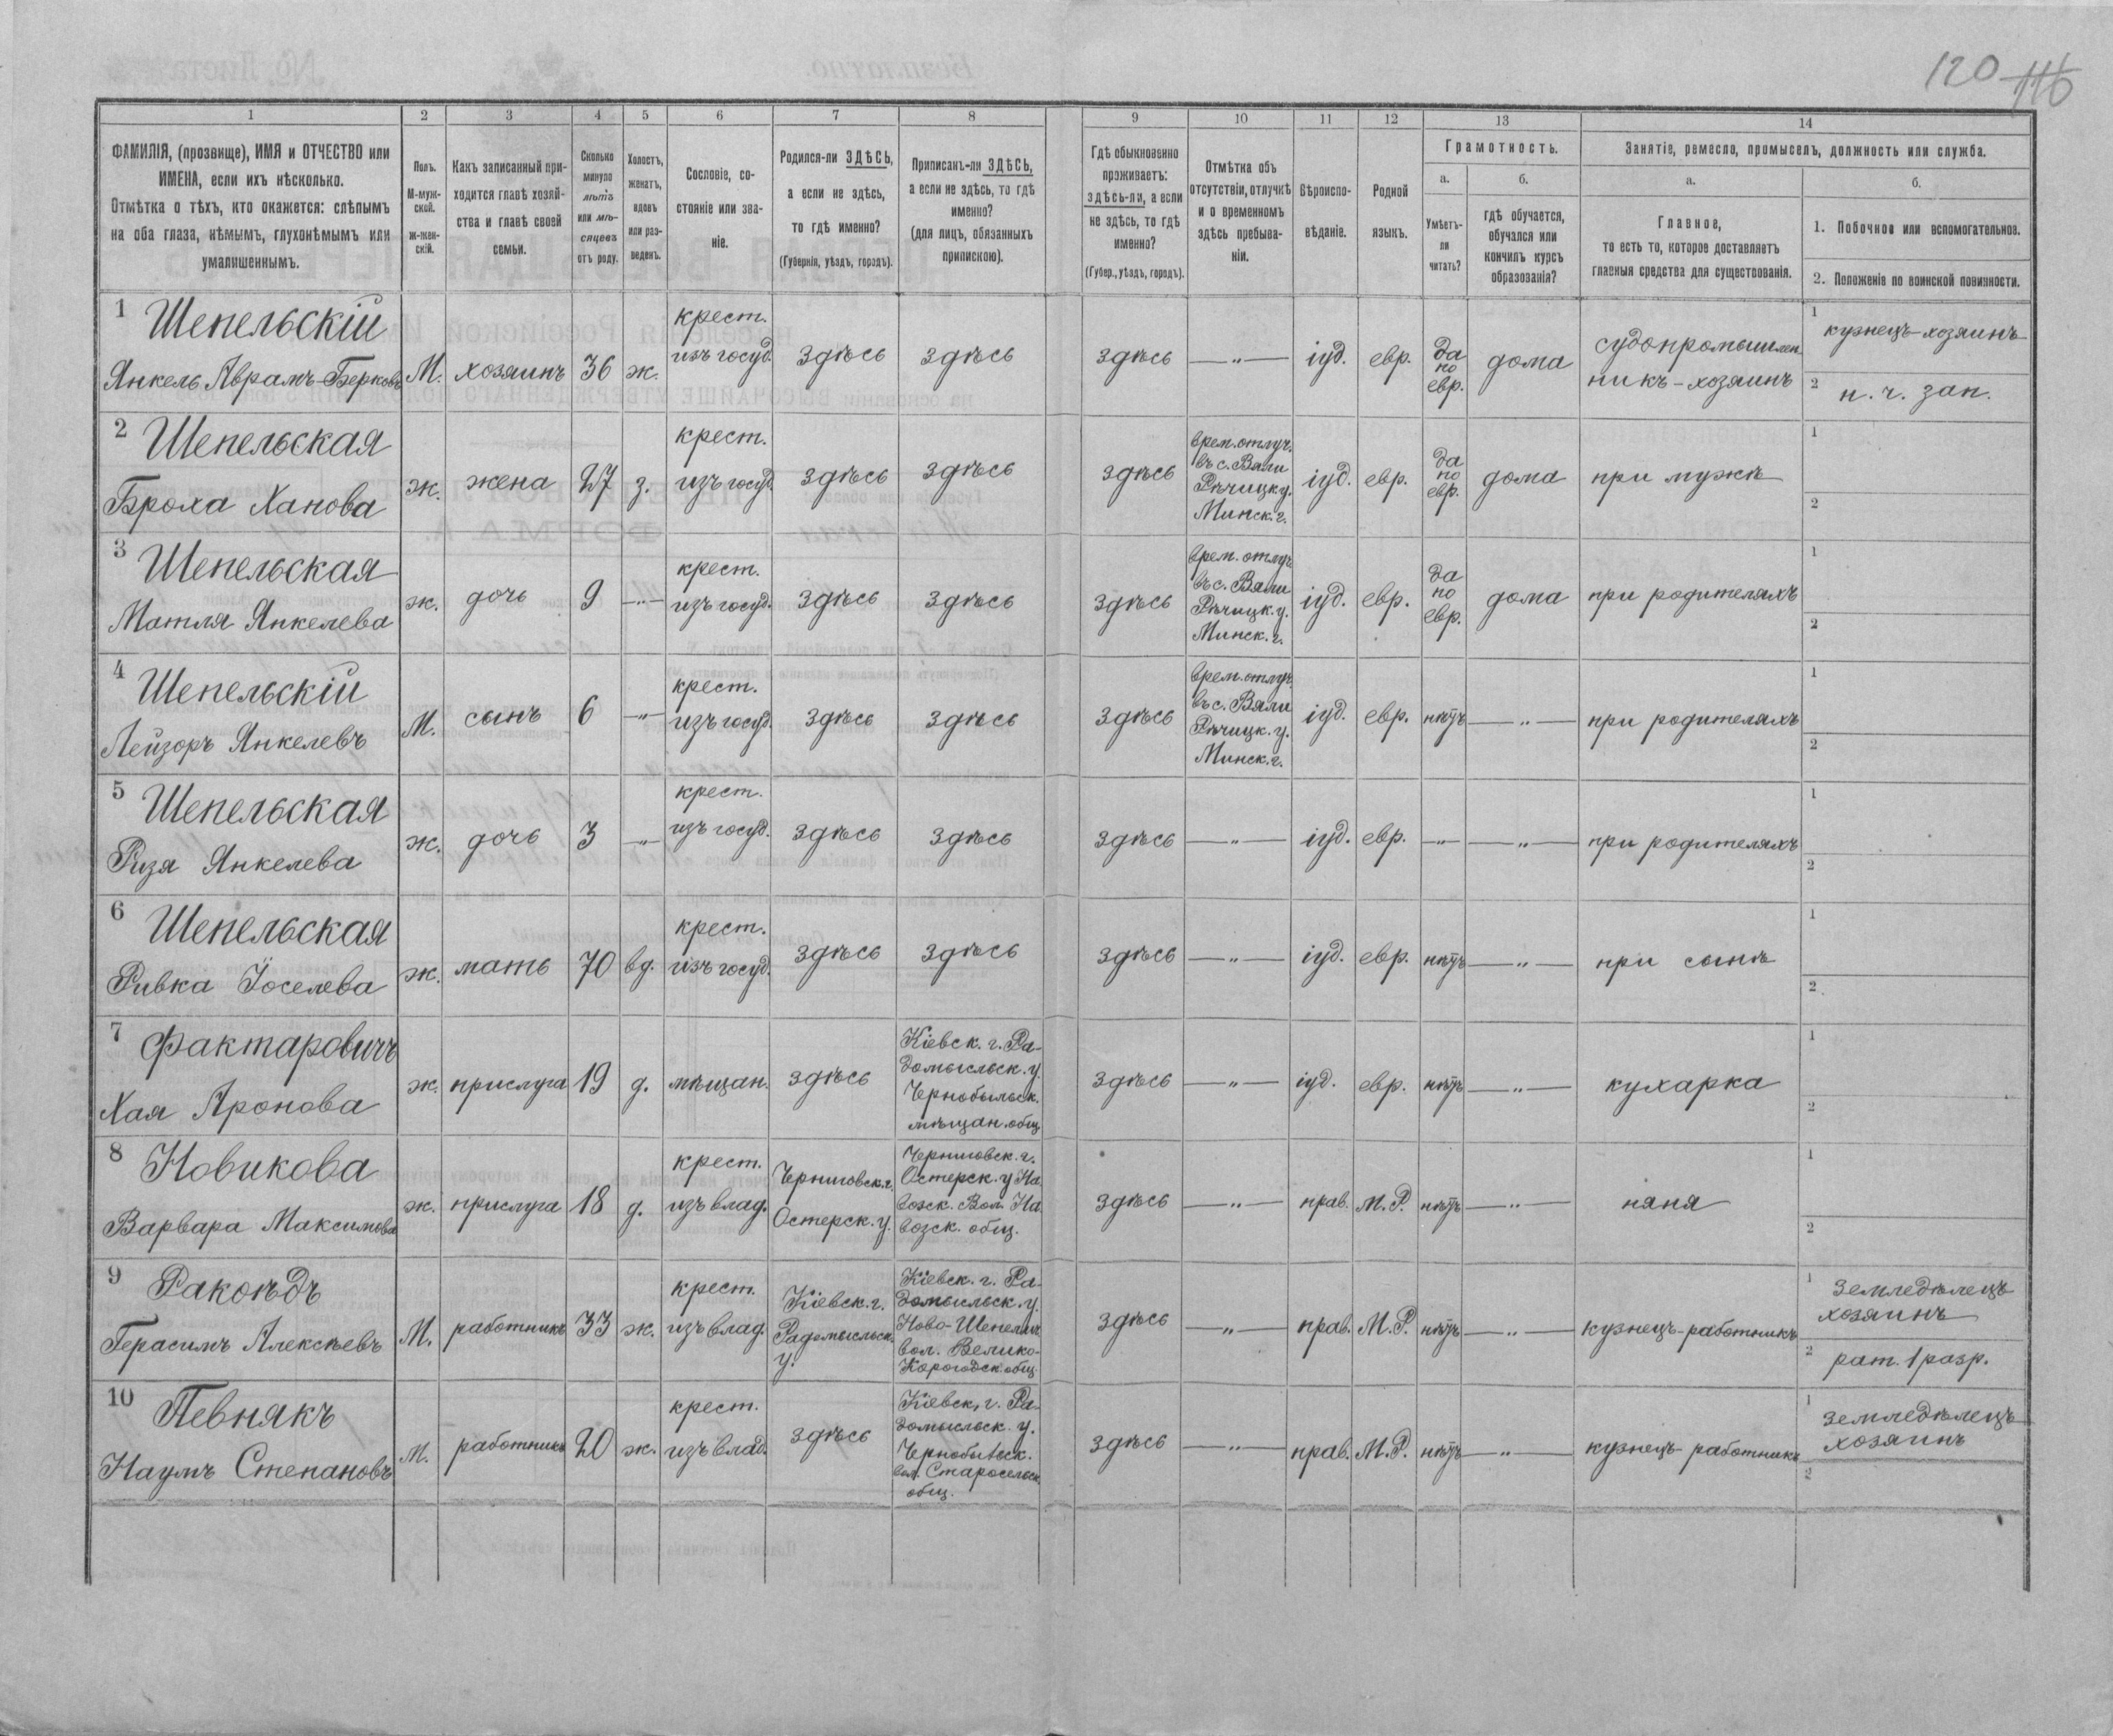 120 116
1 2 3 4 5 6 7 8 9 10 11 12 13 14
ФАМИЛІЯ, (прозвище), ИМЯ и ОТЧЕСТВО или
ИМЕНА, если ихъ нѣсколько.
Отмѣтка о тѣхъ, кто окажется: слѣпымъ
на оба глаза, нѣмымъ, глухонѣмымъ или
умалишеннымъ.
Полъ.
М-муж-
ской.
ж-жен-
скій.
Какъ записанный при-
ходится главѣ хозяй-
ства и главѣ своей
семьи.
Сколько
минуло
лѣтъ
или мѣ-
сяцевъ
отъ роду.
Холостъ,
женатъ,
вдовъ
или раз-
веденъ.
Сословіе, со-
стояніе или зва-
ніе.
Родился-ли ЗДѢСЬ,
а если не здѣсь,
то гдѣ именно?
(Губернія, уѣздъ, городъ).
Приписанъ-ли ЗДѢСЬ,
а если не здѣсь, то гдѣ
именно?
(для лицъ, обязанныхъ
припискою).
Гдѣ обыкновенно
проживаетъ:
здѣсь-ли, а если
не здѣсь, то гдѣ
именно?
(Губер., уѣздъ, городъ).
Отмѣтка объ
отсутствіи, отлучкѣ
и о временномъ
здѣсь пребыва-
ніи.
Вѣроиспо-
вѣданіе.
Родной
языкъ.
Грамотность.
а.
Умѣетъ-
ли
читать?
б.
гдѣ обучается,
обучался или
кончилъ курсъ
образованія?
Занятіе, ремесло, промыселъ, должность или служба.
а.
Главное,
то есть то, которое доставляетъ
главныя средства для существованія.
б.
1. Побочное или вспомогательное.
2. Положеніе по воинской повинности.
1 Шепельскій
Янкель Аврамъ-Берковъ
М.
хозяинъ
36
ж.
крест.
изъ госуд.
здѣсь
здѣсь
здѣсь
—„—
іуд.
евр.
да
по
евр.
дома
судопромышлен
никъ-хозяинъ
1 кузнецъ-хозяинъ
2 н. ч. зап.
2 Шепельская
Броха Ханова
ж.
жена
27
з.
крест.
изъ госуд.
здѣсь
здѣсь
здѣсь
врем. отлуч.
въ с. Вяли
Рѣчицк у.
Минск. г.
іуд.
евр.
да
по
евр.
дома
при мужѣ
1
2
3 Шепельская
Матля Янкелева
ж.
дочь
9
—„—
крест.
изъ госуд.
здѣсь
здѣсь
здѣсь
врем. отлуч
въ с. Вяли
Рѣчицк. у.
Минск. г.
іуд.
евр.
да
по
евр.
дома
при родителяхъ
1
2
4 Шепельскій
Лейзоръ Янкелевъ
М.
сынъ
6
—„—
крест.
изъ госуд.
здѣсь
здѣсь
здѣсь
врем. отлуч.
въ с. Вяли
Рѣчицк. у.
Минск. г.
іуд.
евр.
нѣтъ
—„—
при родителяхъ
1
2
5 Шепельская
Ризя Янкелева
ж.
дочь
3
—„—
крест.
изъ госуд.
здѣсь
здѣсь
здѣсь
—„—
іуд.
евр.
—„—
—„—
при родителяхъ
1
2
6 Шепельская
Ривка Іоселева
ж.
мать
70
вд.
крест.
изъ госуд.
здѣсь
здѣсь
здѣсь
—„—
іуд.
евр.
нѣтъ
—„—
при сынѣ
1
2
7 Фактаровичъ
Хая Аронова
ж.
прислуга
19
д.
мѣщан.
здѣсь
Кіевск. г. Ра-
домысльск. у.
Чернобыльск.
мѣщан. общ.
здѣсь
—„—
іуд.
евр.
нѣтъ
—„—
кухарка
1
2
8 Новикова
Варвара Максимова
ж.
прислуга
18
д.
крест.
изъ влад.
Черниговск. г.
Остерск. у.
Черниговск. г.
Остерск. у На
возск. Вол. На
возск. общ.
здѣсь
—„—
прав.
М. Р.
нѣтъ
—„—
няня
1
2
9 Ракоѣдъ
Герасимъ Алексѣевъ
М.
работникъ
33
ж.
крест.
изъ влад.
Кіевск. г.
Радомысльск.
у.
Кіевск. г. Ра-
домысльск. у.
Ново-Шепелич
вол. Велико-
Корогодск. общ.
здѣсь
—„—
прав.
М. Р.
нѣтъ
—„—
кузнецъ-работникъ
1 земледѣлецъ
хозяинъ
2 рат. 1 разр.
10 Певнякъ
Наумъ Степановъ
М.
работникъ
20
ж.
крест.
изъ влад.
здѣсь
Кіевск. г. Ра-
домысльск. у.
Чернобыльск.
вол. Старосельск.
общ.
здѣсь
—„—
прав.
М. Р.
нѣтъ
—„—
кузнецъ-работникъ
1 земледѣлецъ
хозяинъ
2